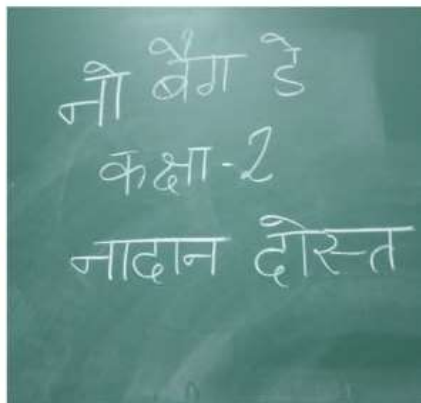 नो बैग डे
कक्षा-2
नादान दोस्त